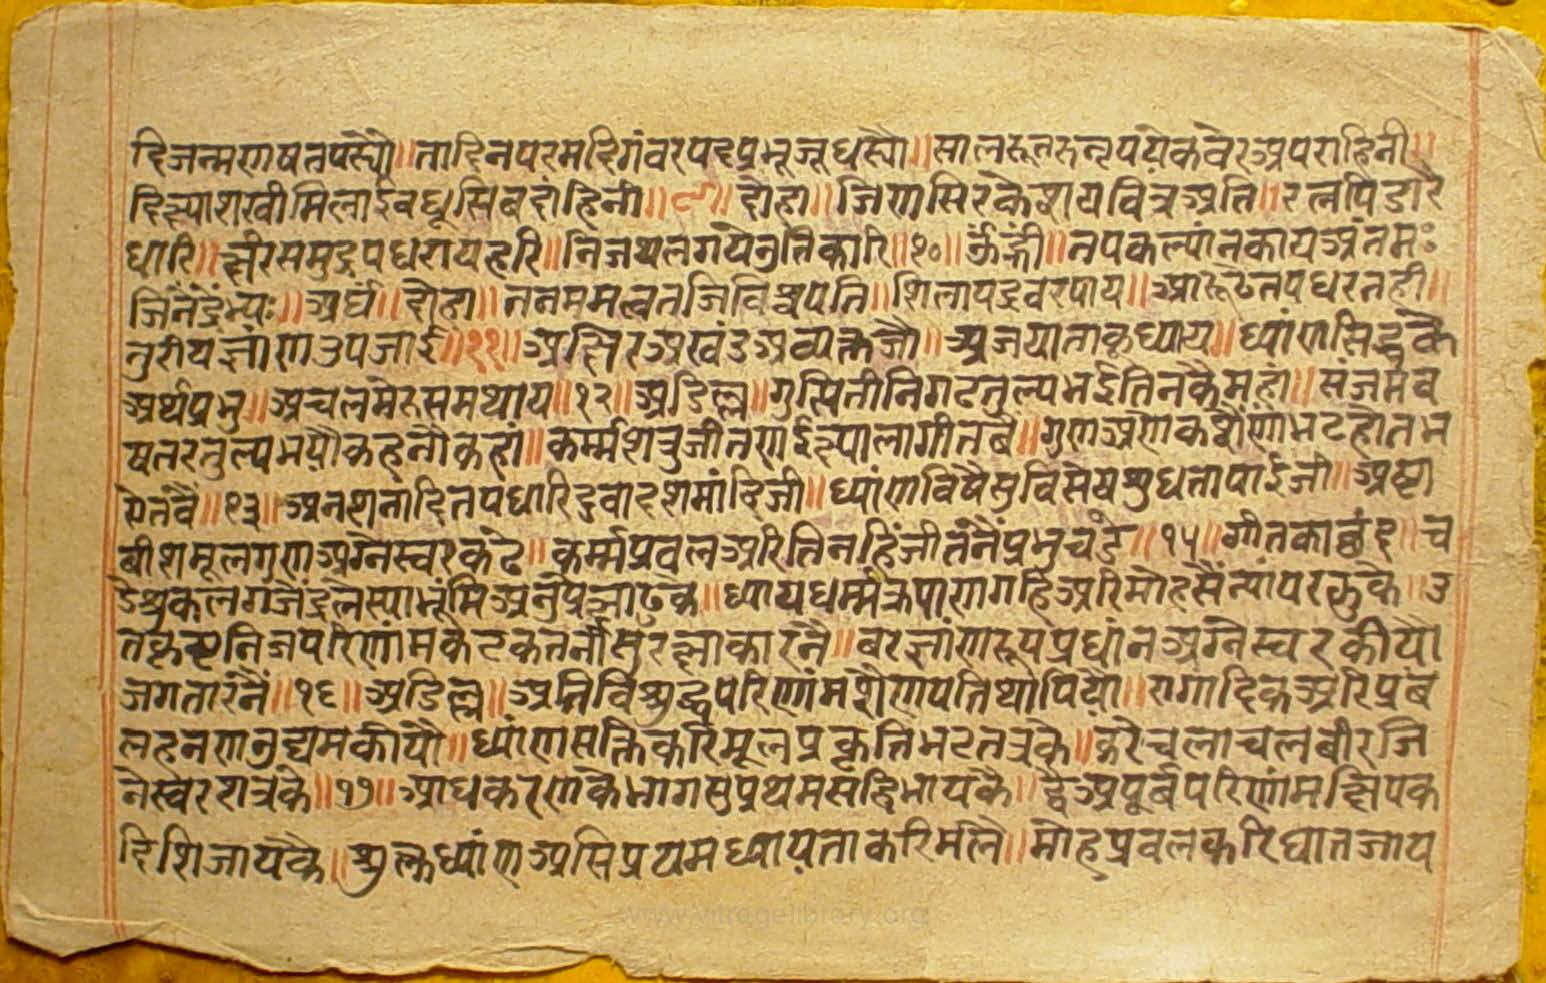 दिजन्मणषतपस्यौ॥तादिनपरमदिगंवरपदप्रभूजूधस्यौ॥सालरूतरुतन्पपयेकवैरअपराहिनी॥
दिक्ष्याशखीमिलाईवधूसिवदांहिनी॥९॥दोहा॥जिणसिरकेशयवित्रअति॥रत्नपिडारै
धारि॥क्षीरसमुद्रपधरायहरि॥निजथलगयेनुतिकारि॥१०॥ॐह्रीं॥तपकल्यांनकायअंतमः
जिनेंद्रेंभ्यः॥अर्घं॥दोहा॥तनममत्वतजिविश्वपति॥शिलापट्टवरपाय॥आरूढतपधरतही॥
तुरीयज्ञांणउपजाई॥११॥अक्षिरअखंडअव्यक्तजौ॥अजयाताकूध्याय॥ध्यांणसिद्धकै
अर्थप्रभु॥अचलमेरुसमथाय॥१२॥अडिल्ल॥गुप्तितीनिगटतुल्यभईतिनकैमहां॥संजमव
षतरतुल्यभयौकहनौकहां॥कर्म्मशत्रुजीतणईक्ष्यालागीतबै॥गुणअणेकशैंणाभटहोतभ
येतवै॥१३॥अनशनादितपधारिदुवादशमांहिजी॥ध्यांणविषैसुविसेयशुधतापाईजी॥अष्टा
बीशमूलगुणअग्नेस्वरकंटे॥कर्म्मप्रवलअरितिनहिंजीतंनैंप्रभुचंडे॥१५॥गीतकाछंद॥च
डेशुकलगजेंद्रलेस्याभूंमिअनुप्रेक्षाढके॥ध्यायधर्म्मक्रपाणगहिअरिमोहसैंन्यांपरलुकै॥उ
तकृष्टनिजपरिणांमकटकतनौंसुरक्षाकारनै॥बरज्ञांणरूपप्रधांनअग्नेस्वरकीयौ
जगतारंनैं॥१६॥अडिल्ल॥अतिविशुद्धपरिणांमशैणपतिथापियौ॥रागादिकअरिप्रब
लहनणनुद्यमकीयौ॥ध्यांणसक्तिकरिमूलप्रकृतिभटतत्रकै॥करैचलाचलबीरजि
नेस्वरशत्रकै॥१७॥आधकरणकैभागसुप्रथमसहिभायकै॥ह्वैअपूर्बपरिणांमक्षिपक
दिशिजायकै॥शुक्लध्यांणअसिप्रथमध्यायताकरिमलै॥मोहप्रवलकरिघातजाय
www.vitragelibrary.org